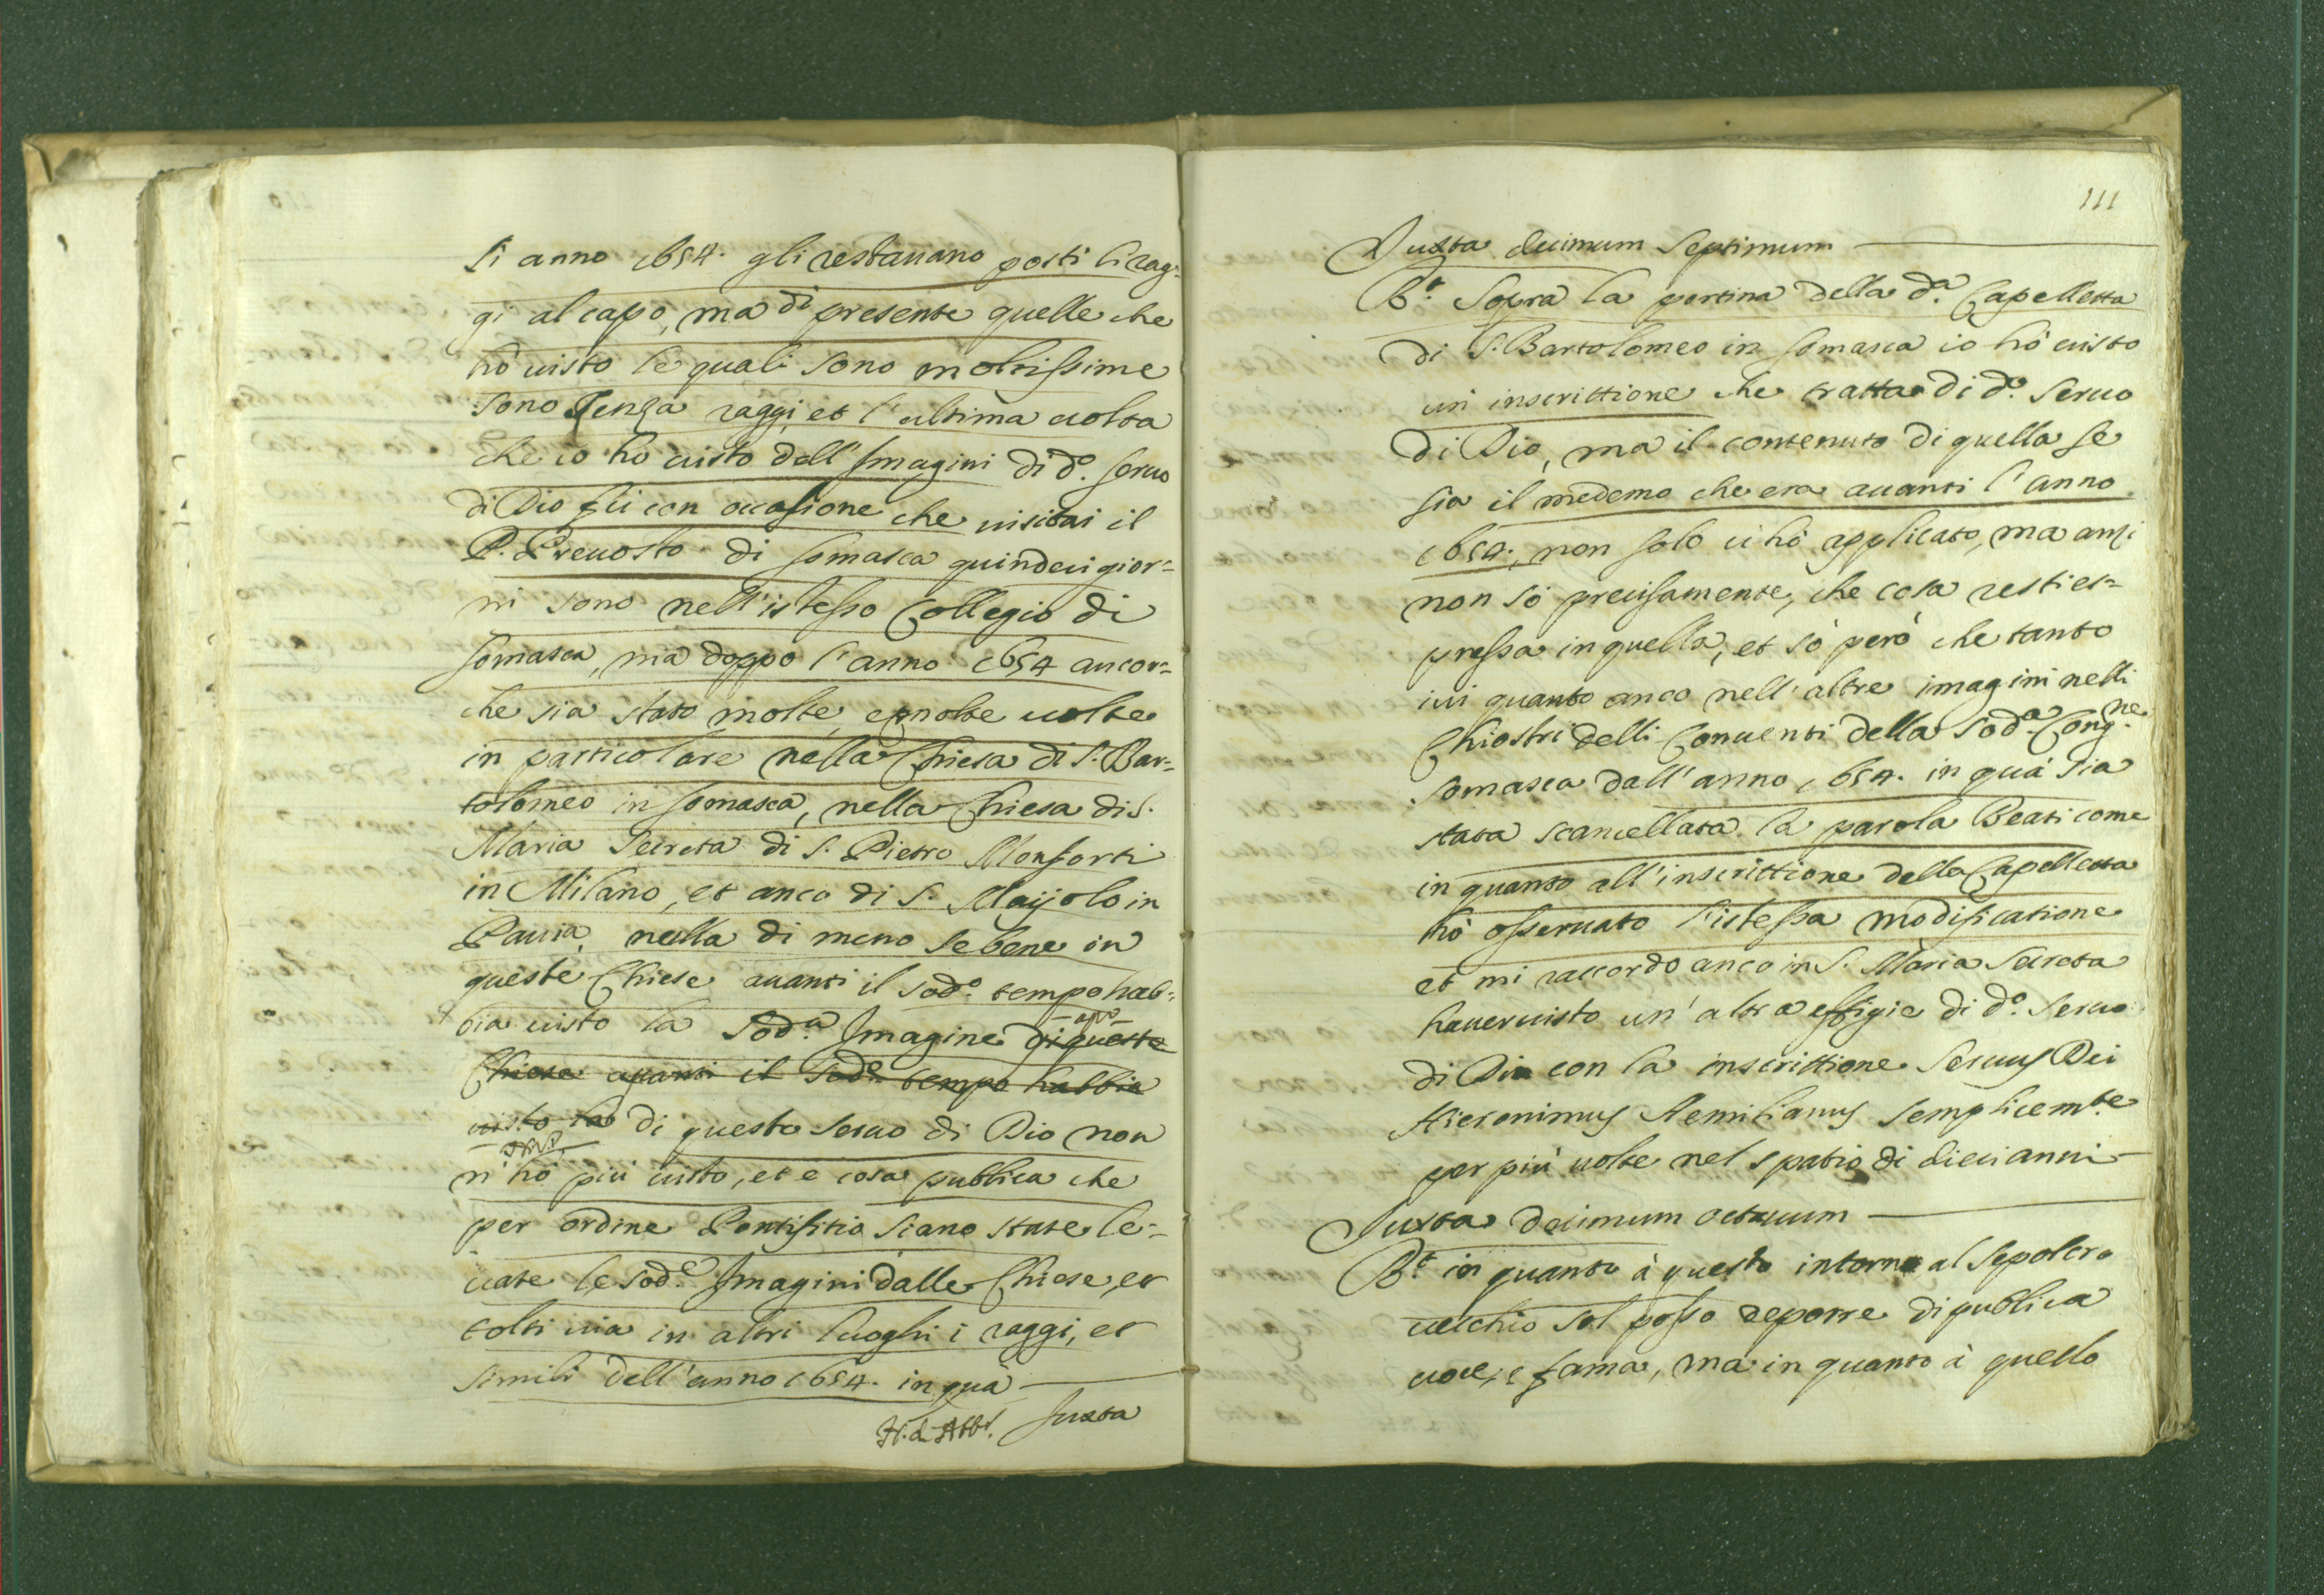 li anno 1654. gli restauano posti li rag=
gi al capo, ma di presente quelle che
hò uisto le quali sono moltissime
sono senza raggi, et l'ultima uolta
che io hò uisto dell'Imagini di d.º seruo
di Dio fù con occasione che uisitai il
P. Preuosto di somasca quindeci gior=
ni sono nell'istesso Collegio di
somasca, mà doppo l'anno 1654 ancor=
che sia stato molte, e molte uolte
in particolare nella Chiesa di S. Bar=
tolomeo in somasca, nella Chiesa di S.
Maria Secreta di S. Pietro Monforti
in Milano, et anco di S. Maijolo in
Pauia, nulla di meno se bene in
queste Chiese auanti il sod.º tempo hab=
bia uisto la sod.ª Imagine di queste
Chiese auanti il sod.º tempo habbia
uisto la di questo seruo di Dio non
n'hò più uisto, et è cosa publica che
per ordine Pontifitio siano state le=
uate le sod.e Imagini dalle Chiese, et
tolti uia in altri luoghi i raggi, et
simili dell'anno 1654. in quà
Juxta
111
Juxta decimum septimum
R.t Sopra la portina della d.ª Capelletta
di S. Bartolomeo in somasca io hò uisto
un inscrittione che tratta di d.º seruo
di Dio, ma il contenuto di quella se
sia il medemo che era auanti l'anno
1654., non solo ui hò applicato, ma anzi
non sò precisamente, che cosa resti es=
pressa in quella, et sò però che tanto
iui quanto anco nell'altre imagini nelli
Chiostri delli Conuenti della sod.ª Cong.ne
somasca dall'anno 1654. in quà sia
stata scancellata la parola Beati come
in quanto all'inscrittione della Capelletta
hò osseruato l'istessa modificatione
et mi raccordo anco in S. Maria Secreta
hauer uisto un'altra effigie di d.º seruo
di Dio con la inscrittione Seruus Dei
Hieronimus Aemilianus semplicem.te
per più uolte nel spatio di dieci anni
Juxta decimum octauum
R.t in quanto à questo intorno al sepolcro
uecchio sol posso deporre di publica
uoce, e fama, mà in quanto à quello